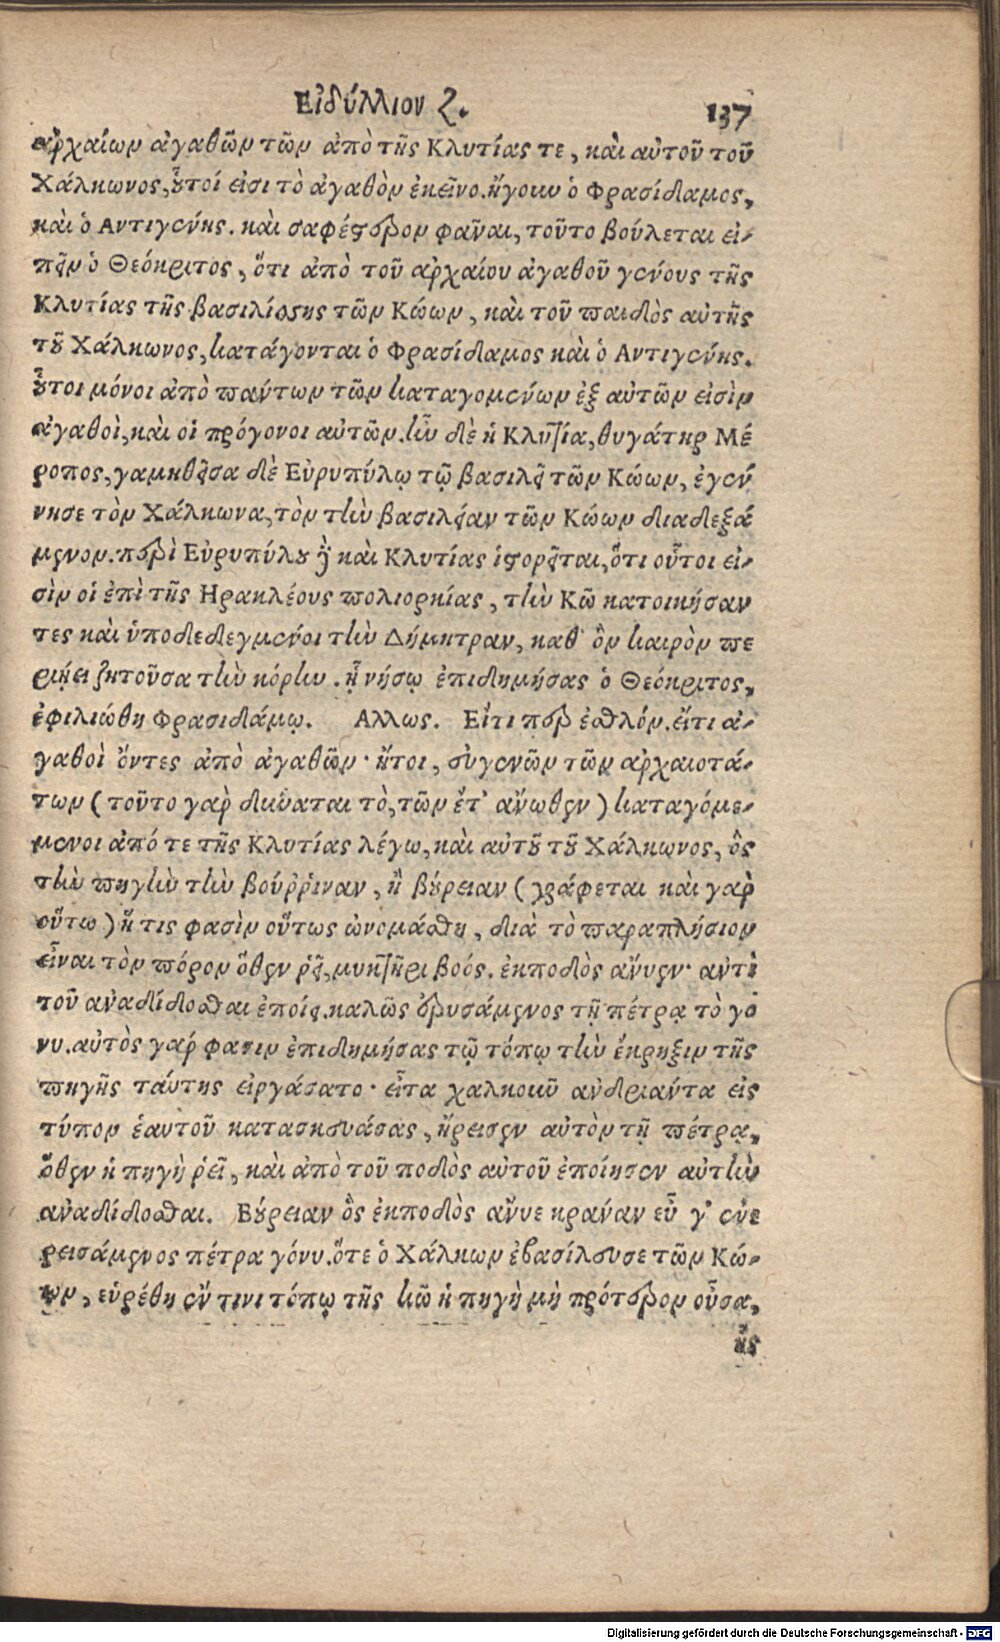 Εἰδύλλιον ζ. 137
αρχαίων ἀγαθῶν τῶν ἀπὸ τῆς Κλυτίας τε, καὶ αὐτοῦ τοῦ
Χάλκωνος, οὗτοί εἰσι τὸ ἀγαθὸν ἐκεῖνο. ἤγουν ὁ Φρασίδαμος,
καὶ ὁ Αντιγένης. καὶ σαφέστερον φᾶναι, τοῦτο βούλεται εἰ-
πεῖν ὁ Θεόκριτος, ὅτι ἀπὸ τοῦ αρχαίου ἀγαθοῦ γένους τῆς
Κλυτίας τῆς βασιλίσσης τῶν Κώων, καὶ τοῦ παιδὸς αὐτῆς
τοῦ Χάλκωνος, κατάγονται ὁ Φρασίδαμος καὶ ὁ Αντιγένης.
οὗτοι μόνοι ἀπὸ πάντων τῶν καταγομένων ἐξ αὐτῶν εἰσὶν
ἀγαθοὶ, καὶ οἱ πρόγονοι αὐτῶν. ἦν δὲ ἡ Κλυτία, θυγάτηρ Μέ
ροπος, γαμηθεῖσα δὲ Εὐρυπύλῳ τῷ βασιλεῖ τῶν Κώων, ἐγέν
νησε τὸν Χάλκωνα, τὸν τὴν βασιλείαν τῶν Κώων διαδεξά
μενον. περὶ Εὐρυπύλου γὰρ καὶ Κλυτίας ἱστορεῖται, ὅτι οὗτοι εἰ-
σὶν οἱ ἐπὶ τῆς Ηρακλέους πολιορκίας, τὴν Κῶ κατοικήσαν
τες καὶ ὑποδεδεγμένοι τὴν Δήμητραν, καθ' ὃν καιρὸν πε
ριῄει ζητοῦσα τὴν κόρην. ᾗ νήσῳ ἐπιδημήσας ὁ Θεόκριτος,
ἐφιλιώθη Φρασιδάμῳ. Αλλως. Εἴτι περ ἐσθλόν. εἴτι ἀ-
γαθοὶ ὄντες ἀπὸ ἀγαθῶν· ἤτοι, συγενῶν τῶν αρχαιοτά-
των (τοῦτο γὰρ δύναται τὸ, τῶν ἔτ' ἄνωθεν) καταγόμε-
μενοι ἀπό τε τῆς Κλυτίας λέγω, καὶ αὐτοῦ τοῦ Χάλκωνος, ὃς
τὴν πηγὴν τὴν βούῤῥιναν, ἢ βούρειαν (γράφεται καὶ γὰρ
οὕτω) ἥ τις φασὶν οὕτως ὠνομάσθη, διὰ τὸ παραπλήσιον
εἶναι τὸν πόρον ὅθεν ῥεῖ, μυκτῆρι βοός. ἐκποδὸς ἄνυεν· ἀντὶ
τοῦ ἀναδίδοσθαι ἐποίει. καλῶς ἐρυσάμενος τῇ πέτρᾳ τὸ γό
νυ. αὐτὸς γάρ φασιν ἐπιδημήσας τῷ τόπῳ τὴν ἔκρηξιν τῆς
πηγῆς ταύτης εἰργάσατο· εἶτα χαλκοῦν ἀνδριάντα εἰς
τύπον ἑαυτοῦ κατασκευάσας, ἤρεισεν αὐτὸν τῇ πέτρᾳ,
ὅθεν ἡ πηγὴ ῥεῖ, καὶ ἀπὸ τοῦ ποδὸς αὐτοῦ ἐποίησεν αὐτὴν
ἀναδίδοσθαι. Βούρειαν ὃς ἐκποδὸς ἄνυε κράναν εὖ γ' ἐνε
ρεισάμενος πέτρα γόνυ. ὅτε ὁ Χάλκων ἐβασίλευσε τῶν Κώ-
ων, εὑρέθη ἔν τινι τόπῳ τῆς κῶ ἡ πηγὴ μὴ πρότερον οὖσα,
ἧς
Digitalisierung gefördert durch die Deutsche Forschungsgemeinschaft - DFG